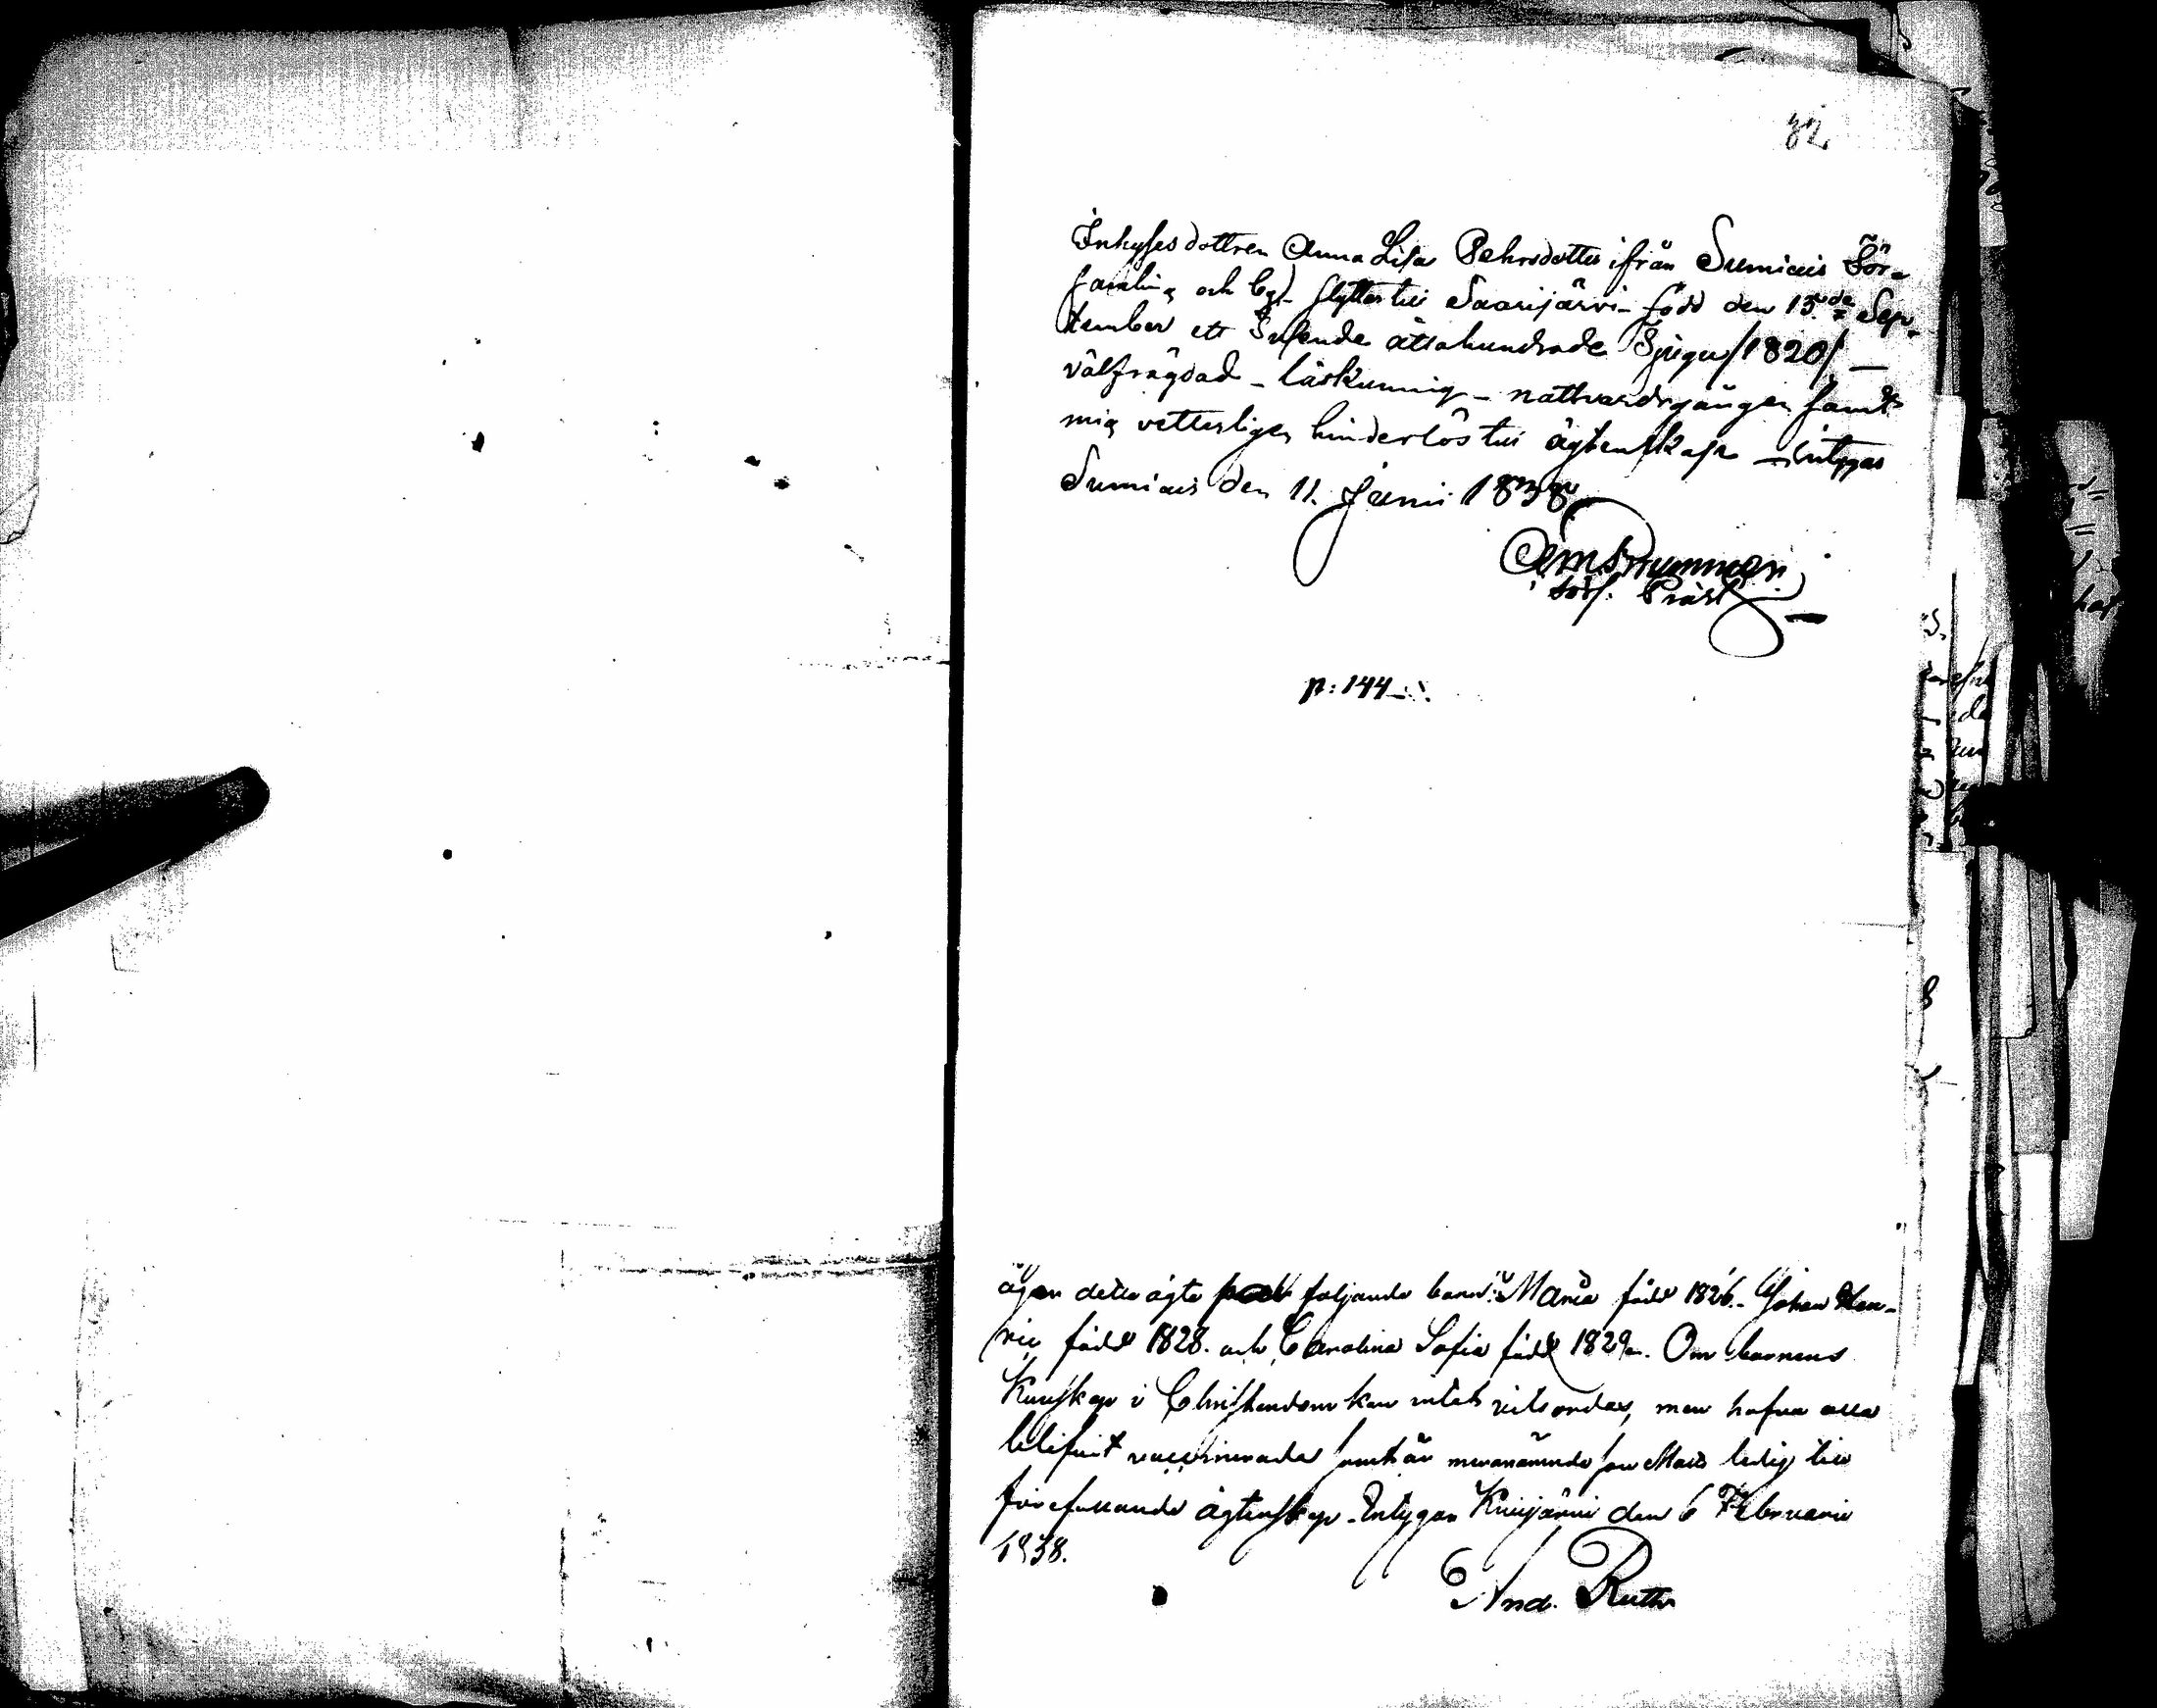 82
Inhyses dottren Anna Lisa Pehrsdotter ifrån Sumiais För-
samling och Cpl flyttar till Saarijärvi - född den 13de Sep-
tember ett Tusende åttahundrade Tjugu /1820/ —
välfrägdad - läskunnig - nattvardsgången samt
mig vetterligen hinderlös till ägtenskap - intygas
Sumiais den 11. Junii 1838.
förs. Präst
p: 144
ägen detta ägta följande barn: Maria född 1826. Johan Hen-
ric född 1828. och Carolina Sofia född 1829. Om barnens
Kunskap i Christendom kan intet vitsordas, men hafva alla
blifvit vaccinerade samt är ledig till
förefallande ägtenskap. Intygar Kivijärvi den 6 Februarii
1838.
And. Ruth